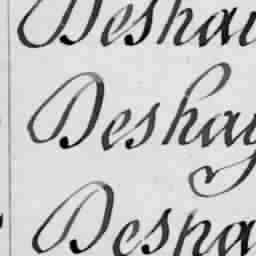 Deshai
Deshay
Desha